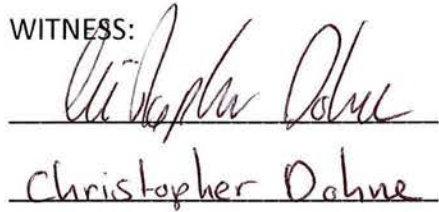 WITNESS:
Christopher Dohne
Christopher Dohne